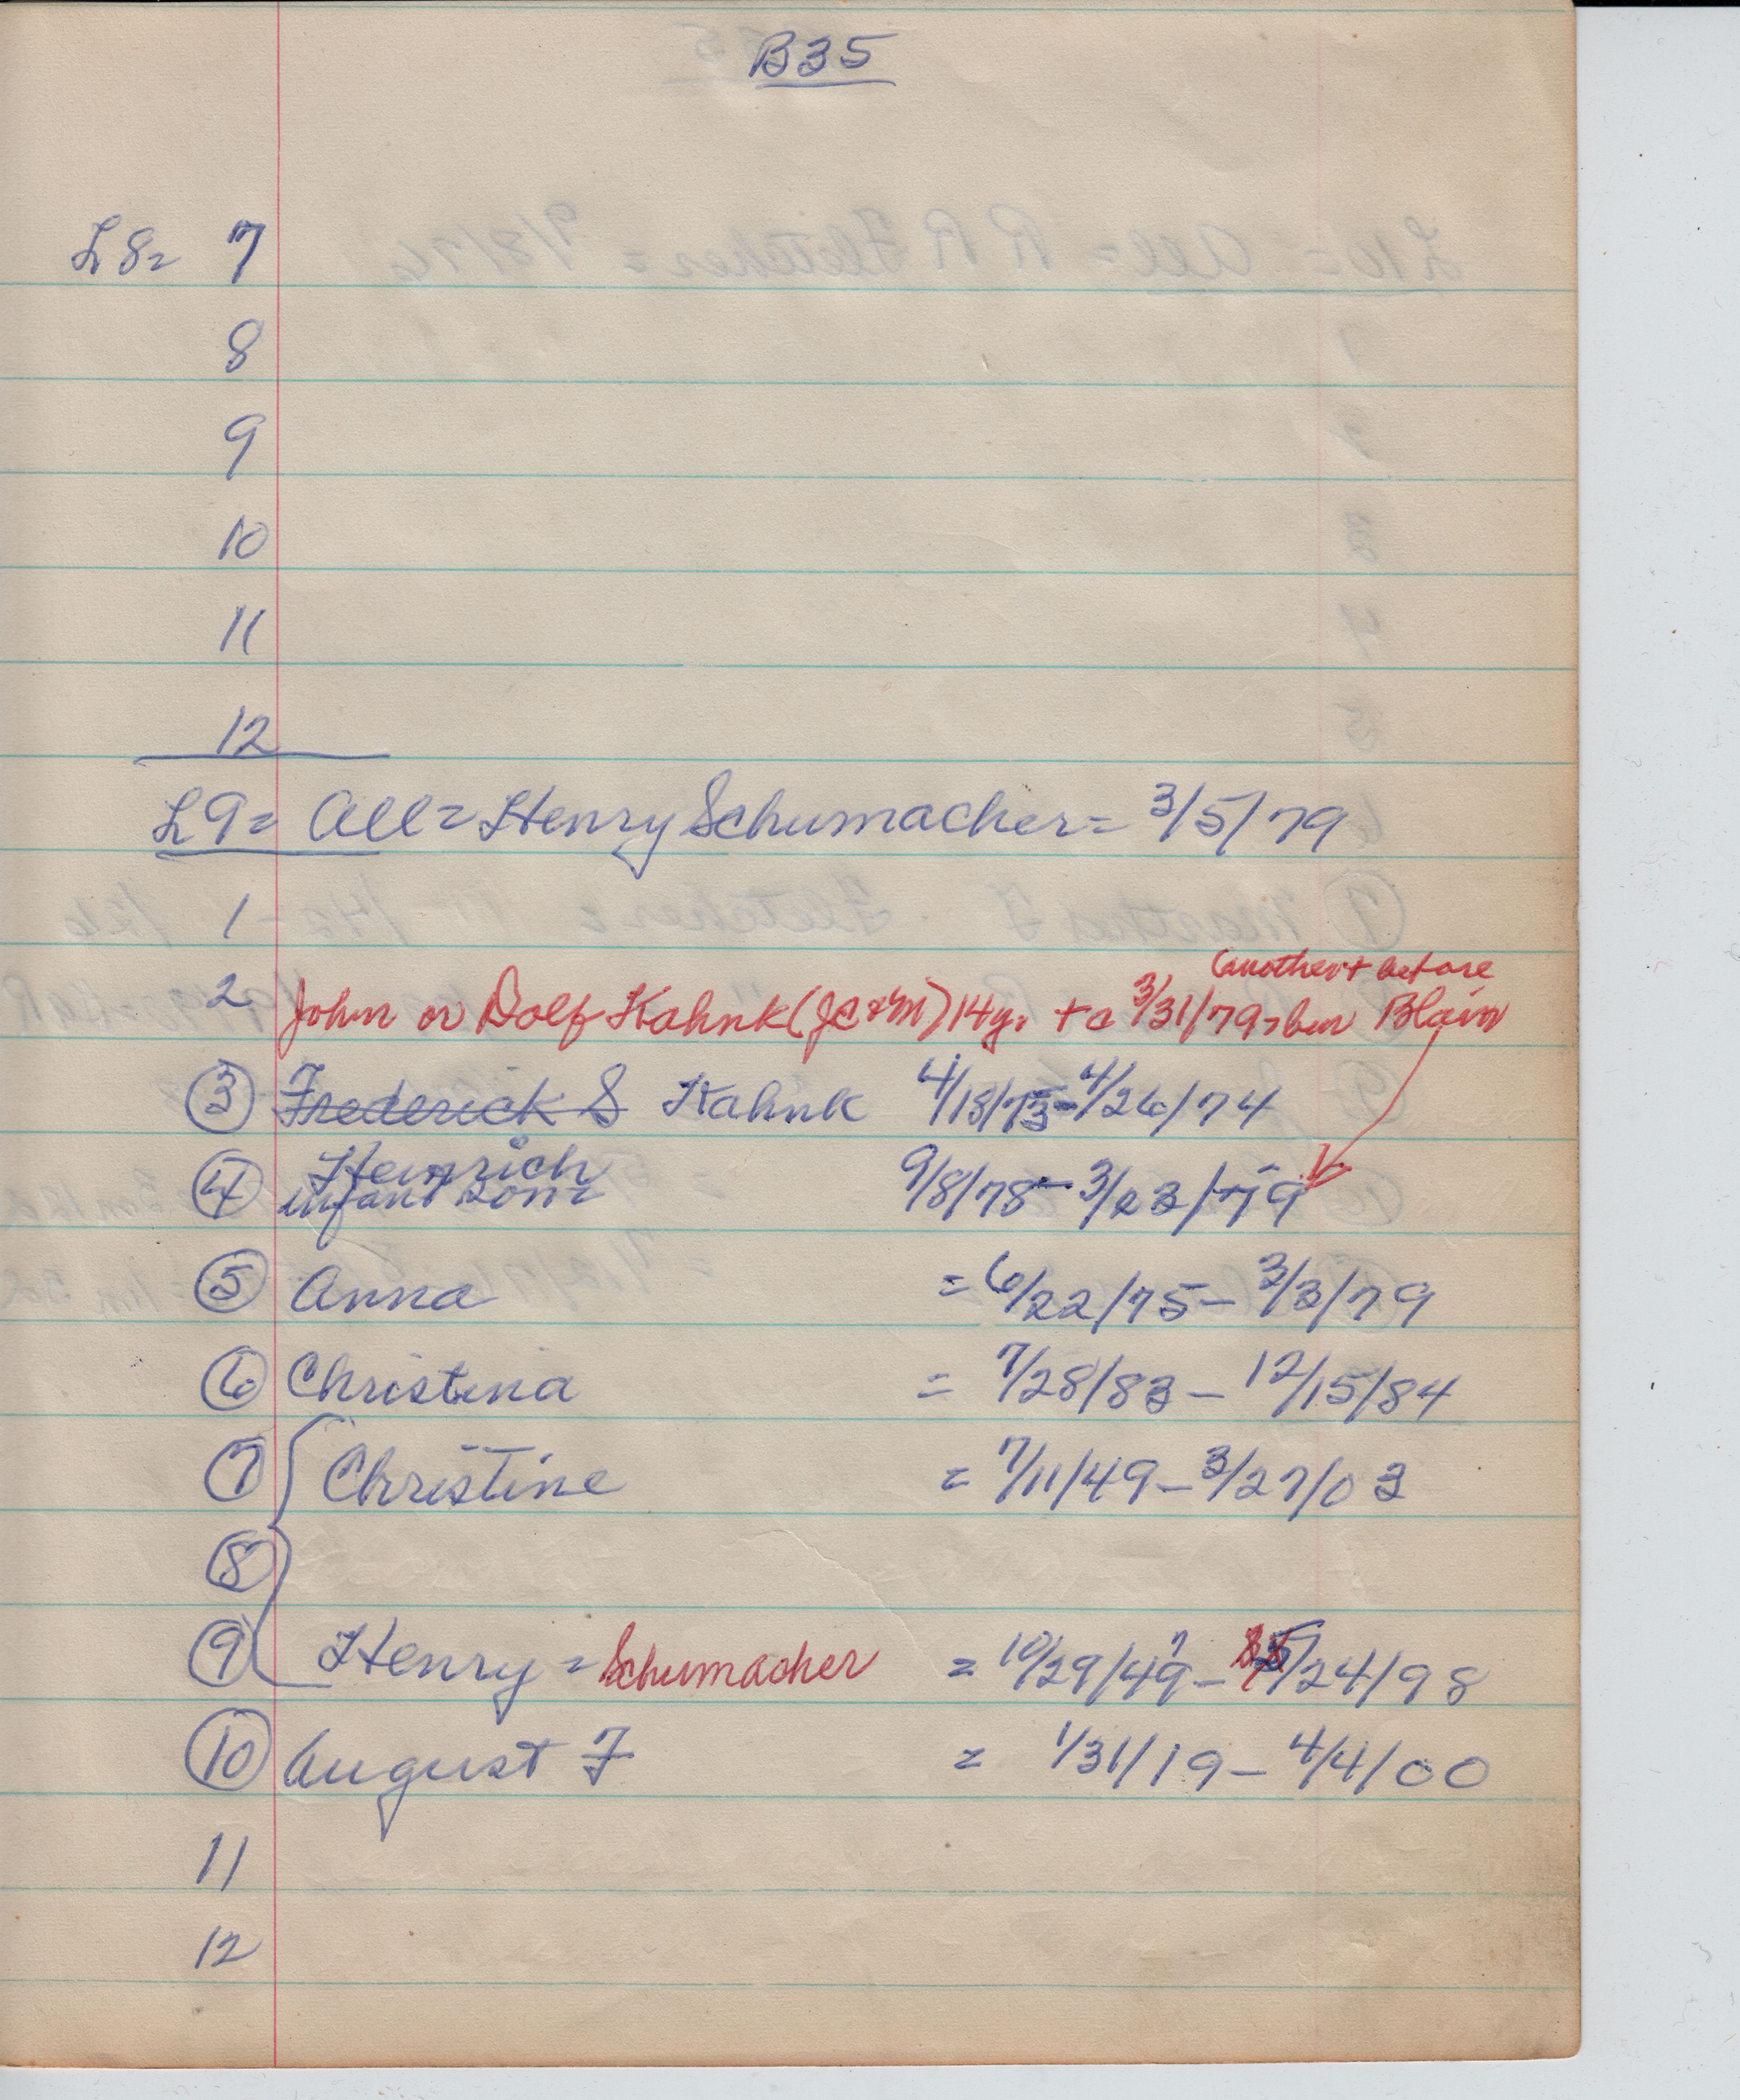 B35
L8= 7
8
9
10
11
12
L9= All = Henry Schumacher = 3/5/79
1
(another + before
2 John or Dolf Kahnk (JC & M) 14y. + c 3/31/79 > bur Blair
3 Frederick S Kahnk 4/18/73 - 4/26/74
Heinrich
4 infant son = 9/8/78 - 3/23/79
5 Anna = 6/22/75 - 3/3/79
6 Christina = 7/28/83 - 12/15/84
7 Christine = 7/11/49 - 3/27/03
8
9 Henry = Schumacher = 10/29/49 - /24/98
10 August F = 1/31/19 - 4/4/00
11
12